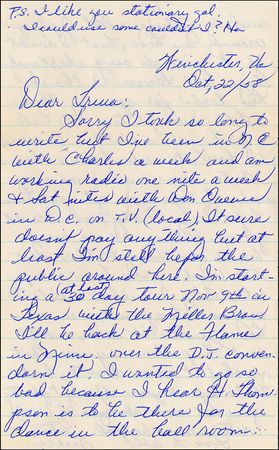 P.S. I like you stationary gal.
I could use some couldn't I? Ha
Winchester, Va
Oct, 22/58
Dear Treva:
Sorry I took so long to
write, but I've been in N.C.
with Charles a week and am
working radio one nite a week
& Sat nites with Don Owens
in D.C. on T.V. (local) It sure
doesn't pay anything but at
least I'm still before the
public around here. I'm start-
ing a (at last) 30 day tour Nov. 9th in
Texas with the Miller Bros.
I'll be back at the Flame
in Minn. over the D.J. conven.
darn it. I wanted to go so
bad because I hear H. Thom-
pson is to be there for the
dance in the ball room.